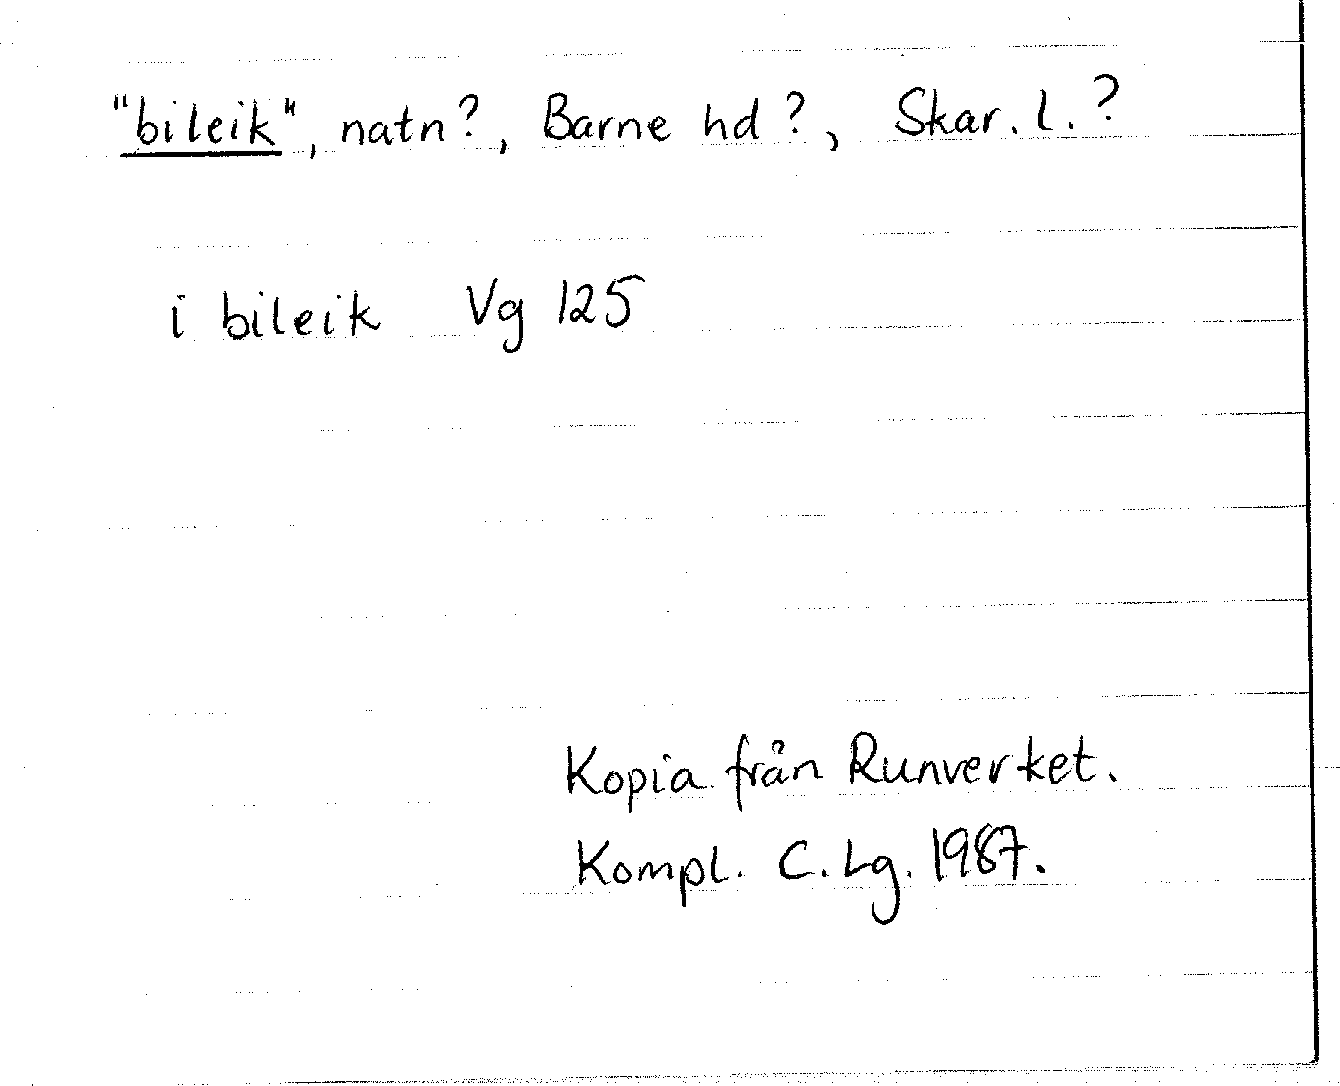 "bileik", natn?, Barne hd?, Skar. l.?
i bileik Vg 125
Kopia från Runverket.
Kompl. C. Lg. 1987.